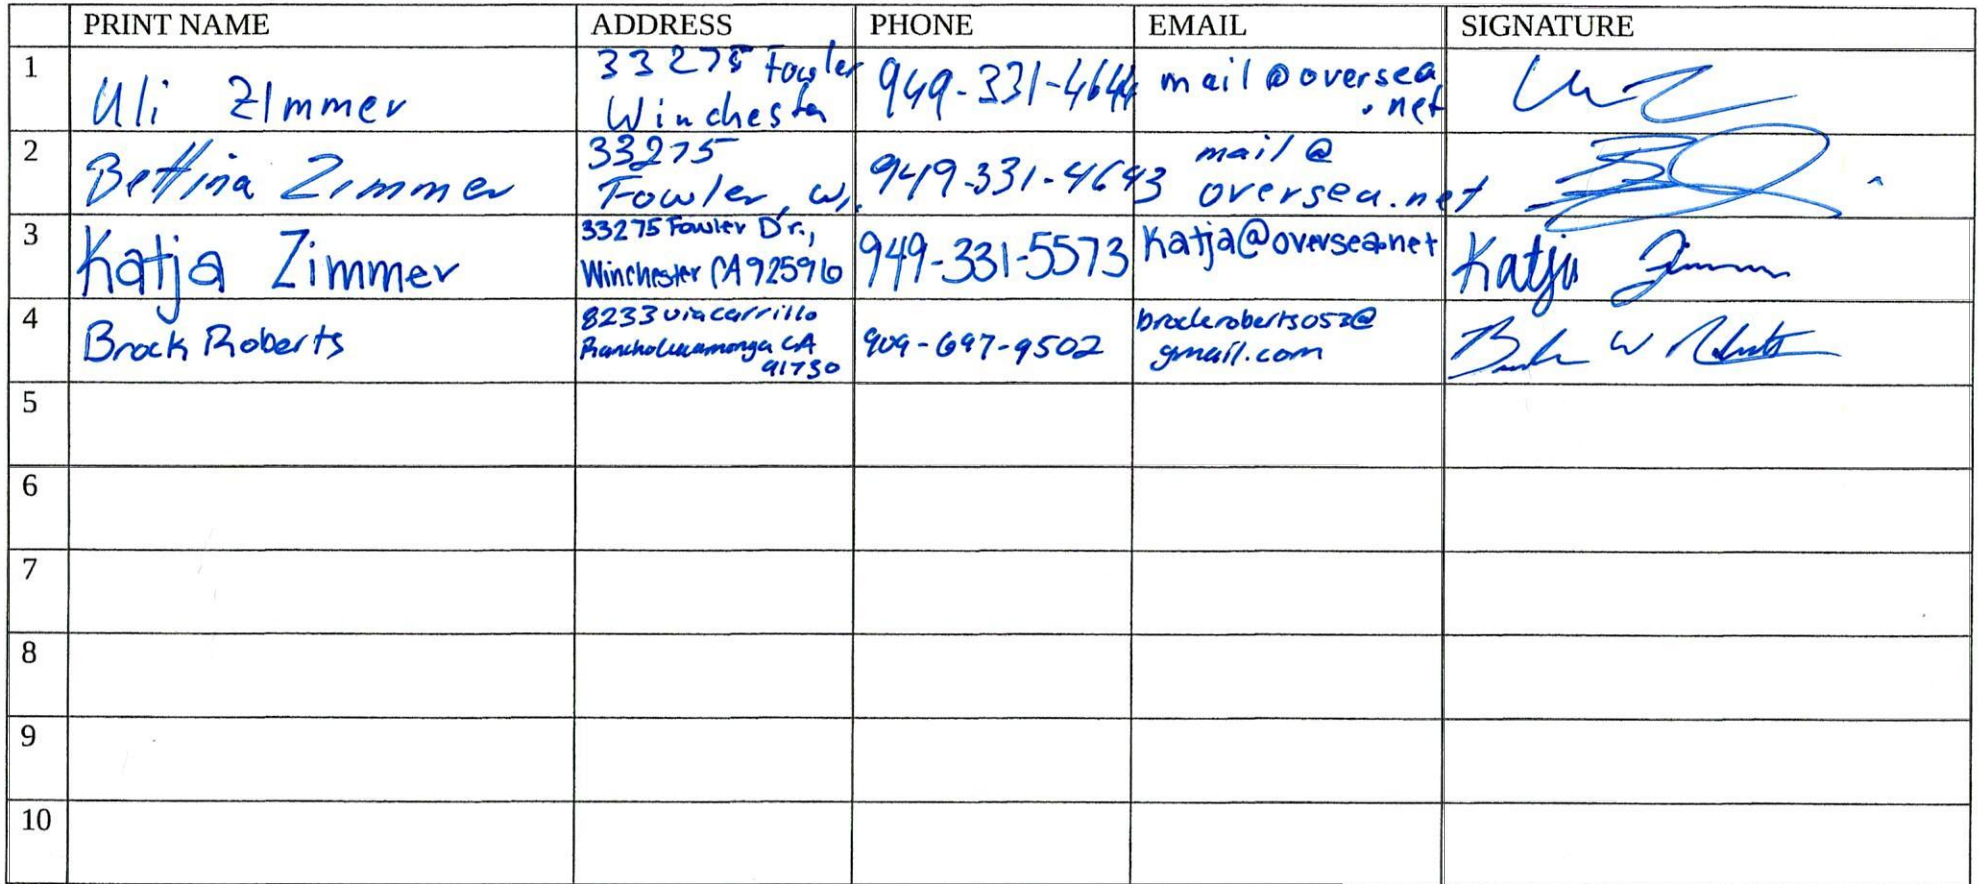 PRINT NAME ADDRESS PHONE EMAIL SIGNATURE
1 Uli Zimmer 33275 Fowler Winchester 949-331-4644 mail@oversea.net
2 Bettina Zimmer 33275 Fowler, W. 949-331-4643 mail@oversea.net
3 Katja Zimmer 33275 Fowler Dr., Winchester CA 92596 949-331-5573 Katja@oversea.net Katja Zimmer
4 Brock Roberts 8233 via carrillo Rancho Cucamonga CA 91730 909-697-9502 brockroberts052@gmail.com Brock W Roberts
5
6
7
8
9
10